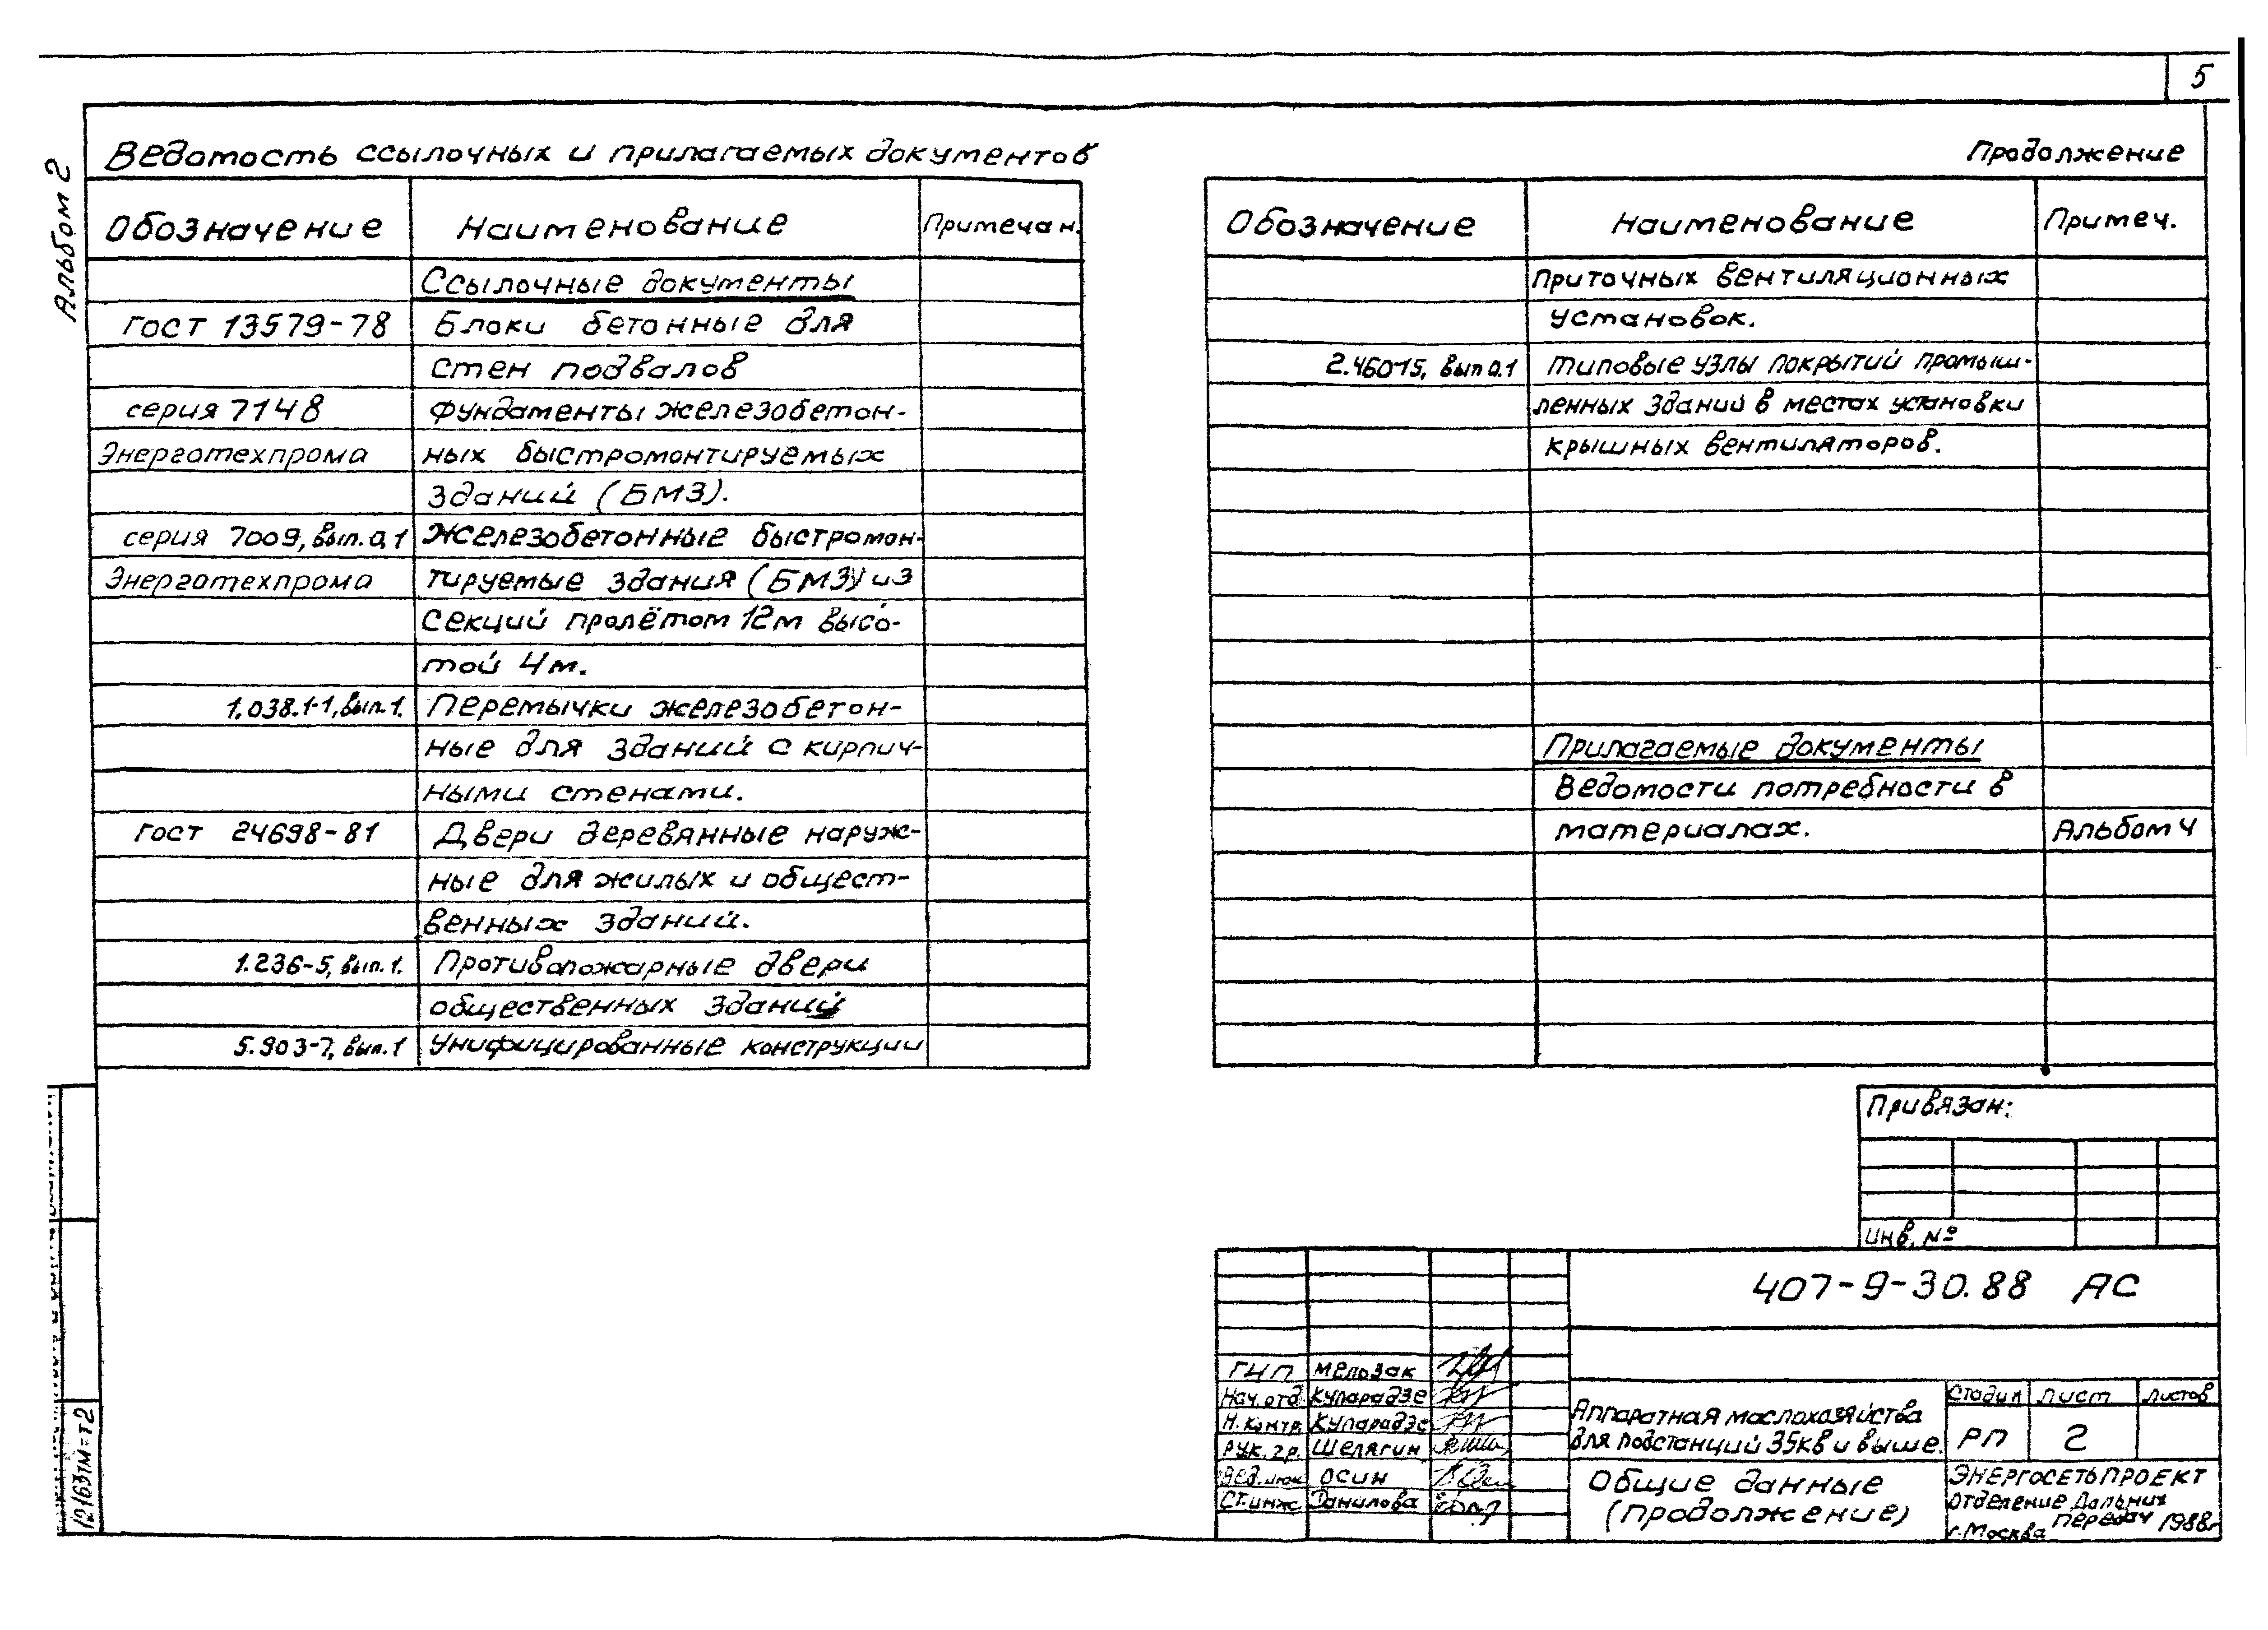 5
Альбом 2
Ведомость ссылочных и прилагаемых документов
Обозначение Наименование Примечан.
Ссылочные документы
ГОСТ 13579-78 Блоки бетонные для
стен подвалов
серия 7148 Фундаменты железобетон-
Энерготехпрома ных быстромонтируемых
зданий (БМЗ).
серия 7009, вып. 0,1 Железобетонные быстромон-
Энерготехпрома тируемые здания (БМЗ) из
секций пролётом 12м высо-
той 4м.
1.038.1-1, вып. 1. Перемычки железобетон-
ные для зданий с кирпич-
ными стенами.
ГОСТ 24698-81 Двери деревянные наруж-
ные для жилых и общест-
венных зданий.
1.236-5, вып. 1. Противопожарные двери
общественных зданий
5.903-7, вып. 1 Унифицированные конструкции
Продолжение
Обозначение Наименование Примеч.
приточных вентиляционных
установок.
2.460-15, вып 0.1 Типовые узлы покрытий промыш-
ленных зданий в местах установки
крышных вентиляторов.
Прилагаемые документы
Ведомости потребности в
материалах. Альбом 4
Привязан:
Инв. №
407-9-30.88 АС
ГИП Мелозак
Нач. отд. Купарадзе
Н. контр. Купарадзе
Рук. гр. Шелягин
Вед. инж Осин
Ст. инж Данилова
Аппаратная маслохозяйства
для подстанций 35кв и выше.
Стадия Лист Листов
РП 2
Общие данные
(Продолжение)
ЭНЕРГОСЕТЬПРОЕКТ
отделение Дальних
передач 1988г
г. Москва
12163тм-т2